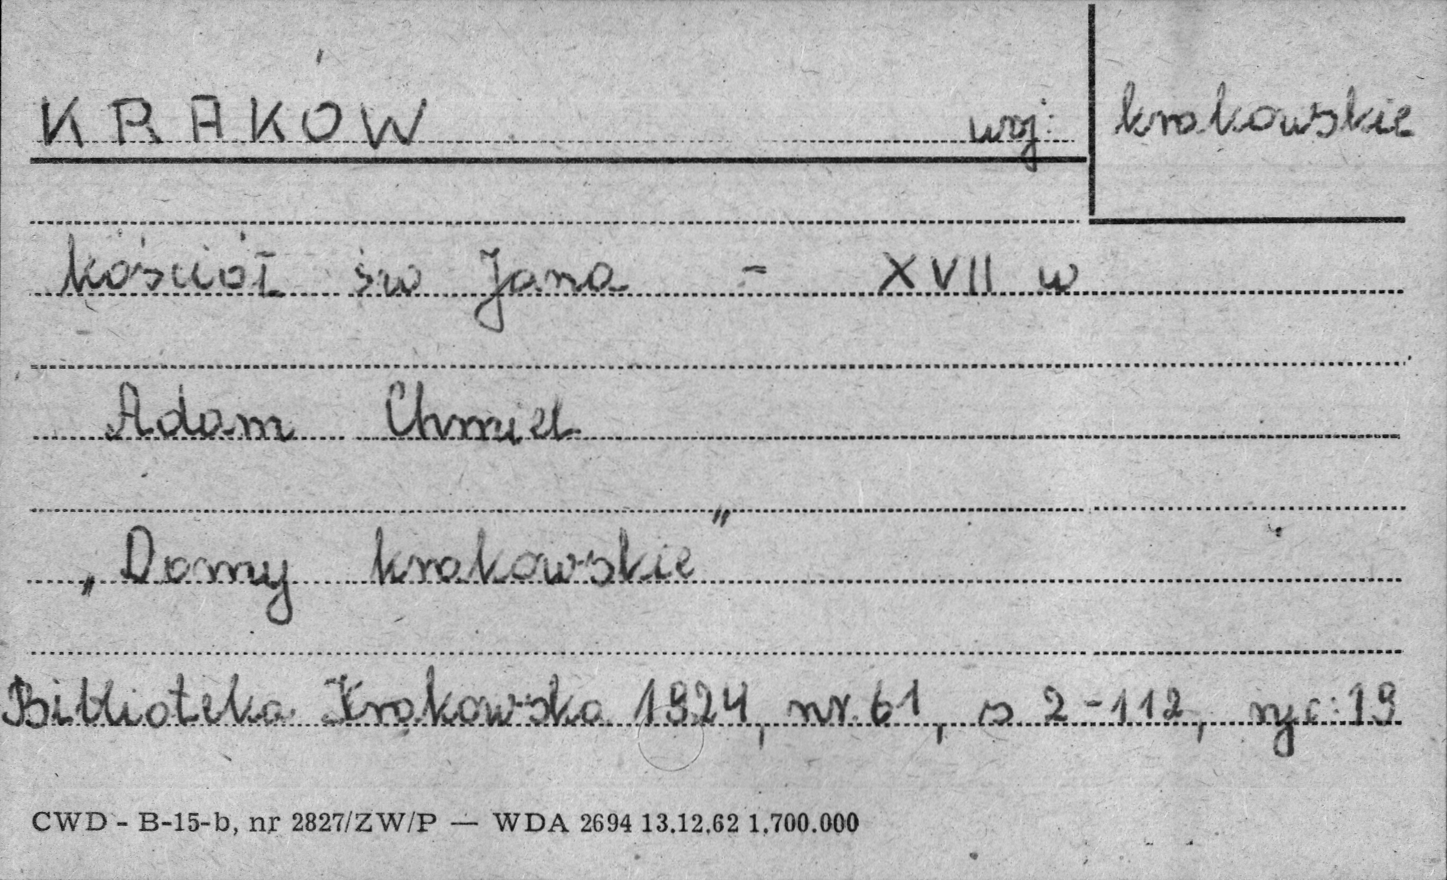 KRAKÓW woj: krakowskie
kościół św Jana - XVII w
Adam Chmiel
„Domy krakowskie"
Biblioteka Krakowska 1924, nr. 61, s 2-112, ryc: 19
CWD - B-15-b, nr 2827/ZW/P — WDA 2694 13.12.62 1.700.000